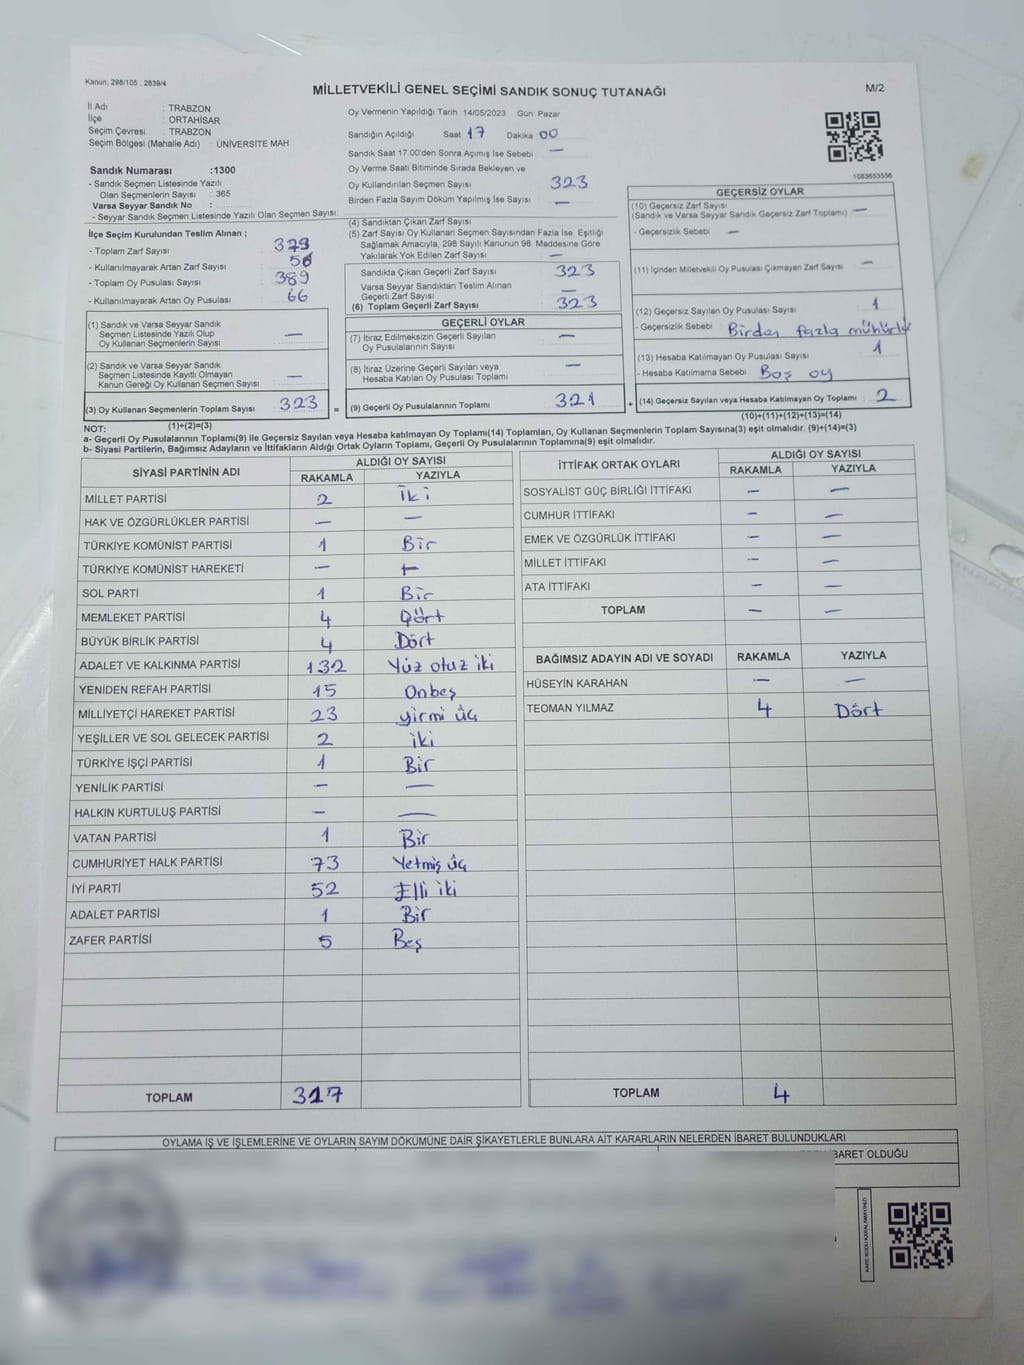 Kanun, 298/105 , 2839/4
MİLLETVEKİLİ GENEL SEÇİMİ SANDIK SONUÇ TUTANAĞI
M/2
İl Adı : TRABZON
İlçe : ORTAHİSAR
Seçim Çevresi : TRABZON
Seçim Bölgesi (Mahalle Adı) : ÜNİVERSİTE MAH.
Oy Vermenin Yapıldığı Tarih 14/05/2023 Gün Pazar
Sandığın Açıldığı Saat 17 Dakika 00
Sandık Saat 17:00'den Sonra Açımış İse Sebebi —
Oy Verme Saati Bitiminde Sırada Bekleyen ve
Oy Kullandırılan Seçmen Sayısı 323
Birden Fazla Sayım Döküm Yapılmış İse Sayısı —
1083653556
Sandık Numarası :1300
- Sandık Seçmen Listesinde Yazılı
Olan Seçmenlerin Sayısı : 365
Varsa Seyyar Sandık No :
- Seyyar Sandık Seçmen Listesinde Yazılı Olan Seçmen Sayısı:
İlçe Seçim Kurulundan Teslim Alınan ;
- Toplam Zarf Sayısı 379
- Kullanılmayarak Artan Zarf Sayısı 56
- Toplam Oy Pusulası Sayısı 389
- Kullanılmayarak Artan Oy Pusulası 66
(1) Sandık ve Varsa Seyyar Sandık
Seçmen Listesinde Yazılı Olup
Oy Kullanan Seçmenlerin Sayısı —
(2) Sandık ve Varsa Seyyar Sandık
Seçmen Listesinde Kayıtlı Olmayan
Kanun Gereği Oy Kullanan Seçmen Sayısı —
(3) Oy Kullanan Seçmenlerin Toplam Sayısı 323 =
(1)+(2)=(3)
(4) Sandıktan Çıkan Zarf Sayısı
(5) Zarf Sayısı Oy Kullanan Seçmen Sayısından Fazla İse, Eşitliği
Sağlamak Amacıyla, 298 Sayılı Kanunun 98. Maddesine Göre
Yakılarak Yok Edilen Zarf Sayısı —
Sandıkta Çıkan Geçerli Zarf Sayısı 323
Varsa Seyyar Sandıktan Teslim Alınan
Geçerli Zarf Sayısı —
(6) Toplam Geçerli Zarf Sayısı 323
GEÇERLİ OYLAR
(7) İtiraz Edilmeksizin Geçerli Sayılan
Oy Pusulalarının Sayısı —
(8) İtiraz Üzerine Geçerli Sayılan veya
Hesaba Katılan Oy Pusulası Toplamı —
(9) Geçerli Oy Pusulalarının Toplamı 321 +
GEÇERSİZ OYLAR
(10) Geçersiz Zarf Sayısı
(Sandık ve Varsa Seyyar Sandık Geçersiz Zarf Toplamı) —
- Geçersizlik Sebebi —
(11) İçinden Milletvekili Oy Pusulası Çıkmayan Zarf Sayısı —
(12) Geçersiz Sayılan Oy Pusulası Sayısı 1
- Geçersizlik Sebebi Birden fazla mühürlü
(13) Hesaba Katılmayan Oy Pusulası Sayısı 1
- Hesaba Katılmama Sebebi Boş oy
(14) Geçersiz Sayılan veya Hesaba Katılmayan Oy Toplamı 2
(10)+(11)+(12)+(13)=(14)
NOT:
a- Geçerli Oy Pusulalarının Toplamı(9) ile Geçersiz Sayılan veya Hesaba katılmayan Oy Toplamı(14) Toplamları, Oy Kullanan Seçmenlerin Toplam Sayısına(3) eşit olmalıdır. (9)+(14)=(3)
b- Siyasi Partilerin, Bağımsız Adayların ve İttifakların Aldığı Ortak Oyların Toplamı, Geçerli Oy Pusulalarının Toplamına(9) eşit olmalıdır.
SİYASİ PARTİNİN ADI ALDIĞI OY SAYISI
RAKAMLA YAZIYLA
MİLLET PARTİSİ 2 İki
HAK VE ÖZGÜRLÜKLER PARTİSİ — —
TÜRKİYE KOMÜNİST PARTİSİ 1 Bir
TÜRKİYE KOMÜNİST HAREKETİ — —
SOL PARTİ 1 Bir
MEMLEKET PARTİSİ 4 Dört
BÜYÜK BİRLİK PARTİSİ 4 Dört
ADALET VE KALKINMA PARTİSİ 132 Yüz otuz iki
YENİDEN REFAH PARTİSİ 15 Onbeş
MİLLİYETÇİ HAREKET PARTİSİ 23 yirmi üç
YEŞİLLER VE SOL GELECEK PARTİSİ 2 iki
TÜRKİYE İŞÇİ PARTİSİ 1 Bir
YENİLİK PARTİSİ — —
HALKIN KURTULUŞ PARTİSİ — —
VATAN PARTİSİ 1 Bir
CUMHURİYET HALK PARTİSİ 73 Yetmiş üç
İYİ PARTİ 52 Elli iki
ADALET PARTİSİ 1 Bir
ZAFER PARTİSİ 5 Beş
TOPLAM 317
İTTİFAK ORTAK OYLARI ALDIĞI OY SAYISI
RAKAMLA YAZIYLA
SOSYALİST GÜÇ BİRLİĞİ İTTİFAKI — —
CUMHUR İTTİFAKI — —
EMEK VE ÖZGÜRLÜK İTTİFAKI — —
MİLLET İTTİFAKI — —
ATA İTTİFAKI — —
TOPLAM — —
BAĞIMSIZ ADAYIN ADI VE SOYADI RAKAMLA YAZIYLA
HÜSEYİN KARAHAN — —
TEOMAN YILMAZ 4 Dört
TOPLAM 4
OYLAMA İŞ VE İŞLEMLERİNE VE OYLARIN SAYIM DÖKÜMÜNE DAİR ŞİKAYETLERLE BUNLARA AİT KARARLARIN NELERDEN İBARET BULUNDUKLARI
İBARET OLDUĞU
KARE KODU KARALAMAYINIZ!